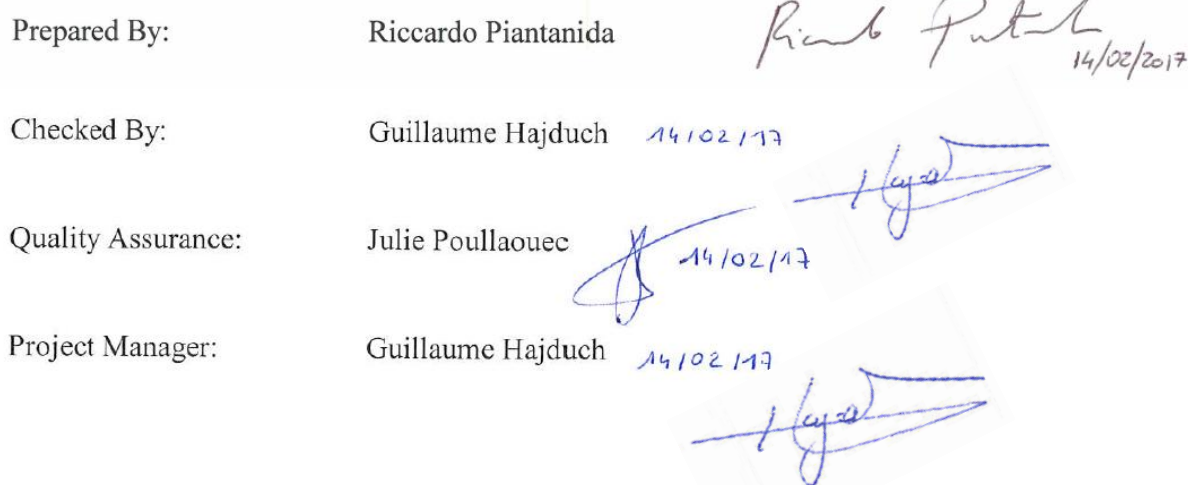 Prepared By: Riccardo Piantanida 14/02/2017
Checked By: Guillaume Hajduch 14/02/17
Quality Assurance: Julie Poullaouec 14/02/17
Project Manager: Guillaume Hajduch 14/02/17